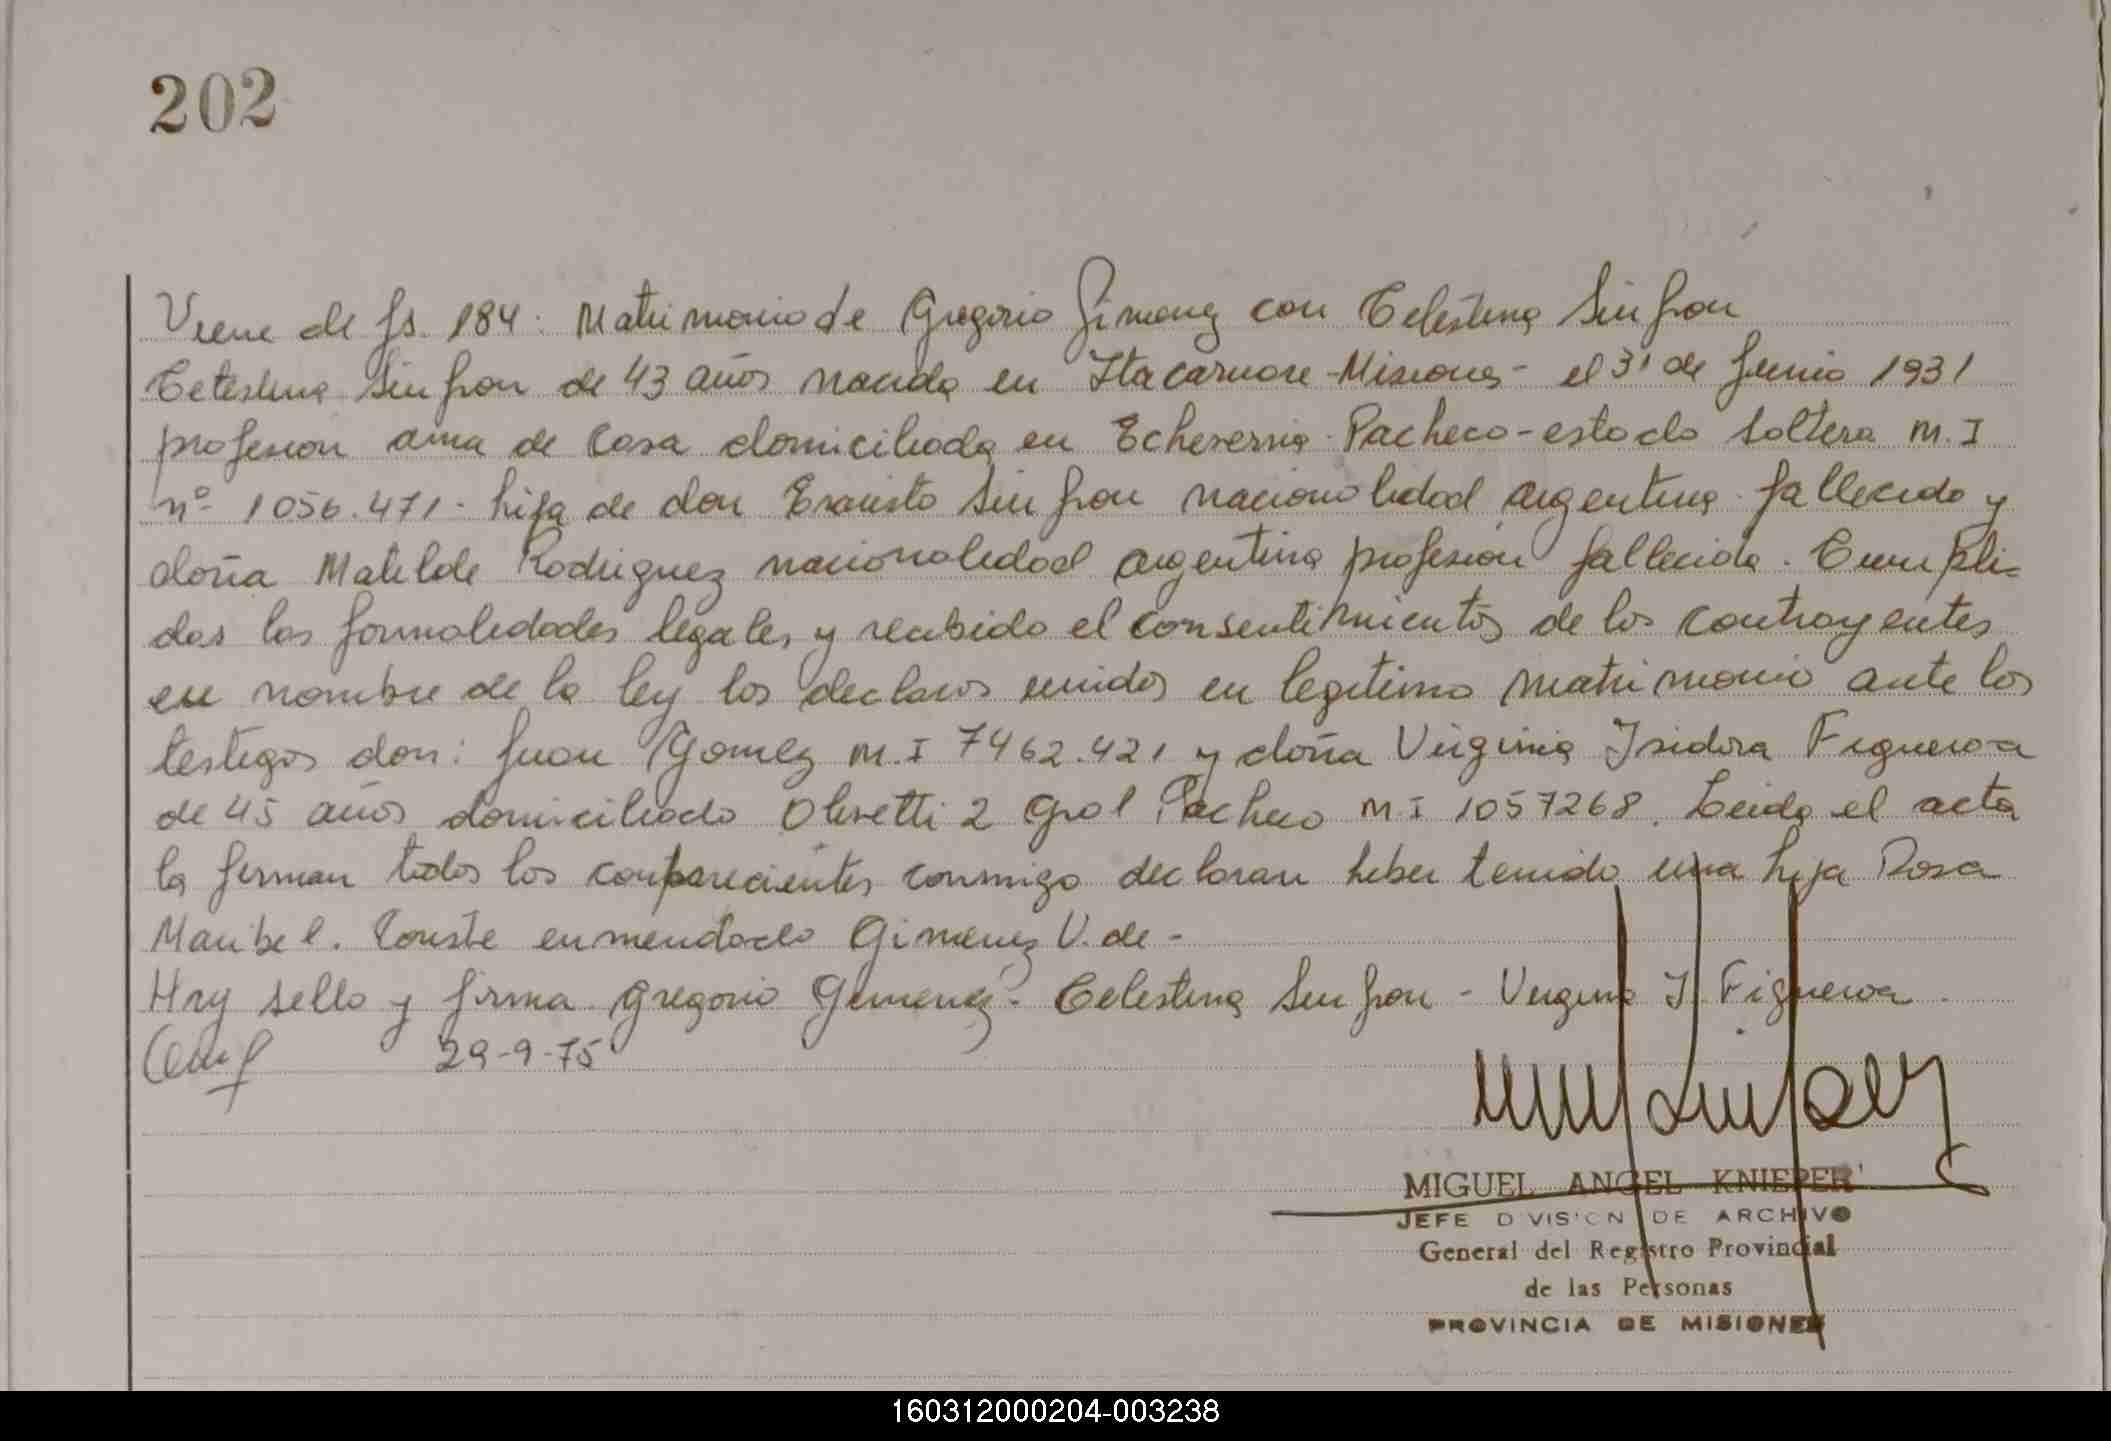 202
Viene de fs. 184. Matrimonio de Gregorio Gimenez con Celestina Sinfron
Celestina Sinfron de 43 años nacida en Itacaruare - Misiones - el 31 de Junio 1931
profesion ama de casa domiciliada en Echeverria - Pacheco - estado soltera M. I
nº 1056.471 - hija de don Evaristo Sinfron nacionalidad argentina - fallecido y
doña Matilde Rodriguez nacionalidad argentina profesión fallecida. Cumpli-
das las formalidades legales y recibido el consentimientos de los contrayentes
en nombre de la ley los declaros unidos en legitimo matrimonio ante los
testigos don: Juan Gomez M. I 7462.421 y doña Virginia Isidora Figueroa
de 45 años domiciliado Olivetti 2 Gral Pacheco M I 1057268. Leida el acta
la firman todos los comparecientes conmigo declaran haber tenido una hija Rosa
Maribel. Conste enmendado Gimenez V. de -
Hay sello y firma. Gregorio Gimenez - Celestina Sinfron - Virginia I. Figueroa.
29-9-75
MIGUEL ANGEL KNIEPER
JEFE DIVISION DE ARCHIVO
General del Registro Provincial
de las Personas
PROVINCIA DE MISIONES
160312000204-003238